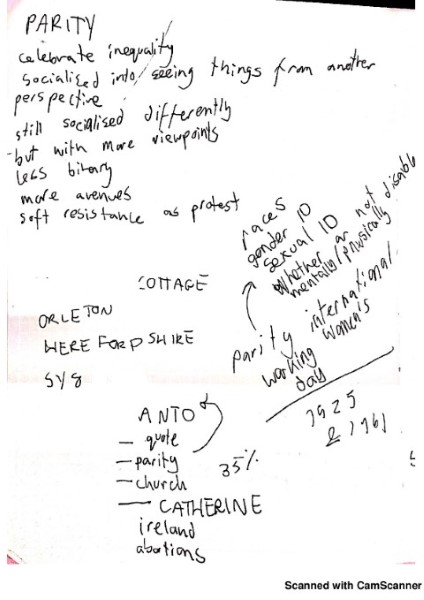 PARITY
celebrate inequality
socialised into seeing things from another
perspective
still socialised differently
-but with more viewpoints
less binary
more avenues
soft resistance as protest
races
gender ID
sexual ID
whether or not disable
mentally/physically
parity international
working women's
day
1925
& 1961
COTTAGE
ORLETON
HEREFORDSHIRE
SY8
ANTO
— quote
— parity
— church
— CATHERINE
ireland
abortions
35%
Scanned with CamScanner